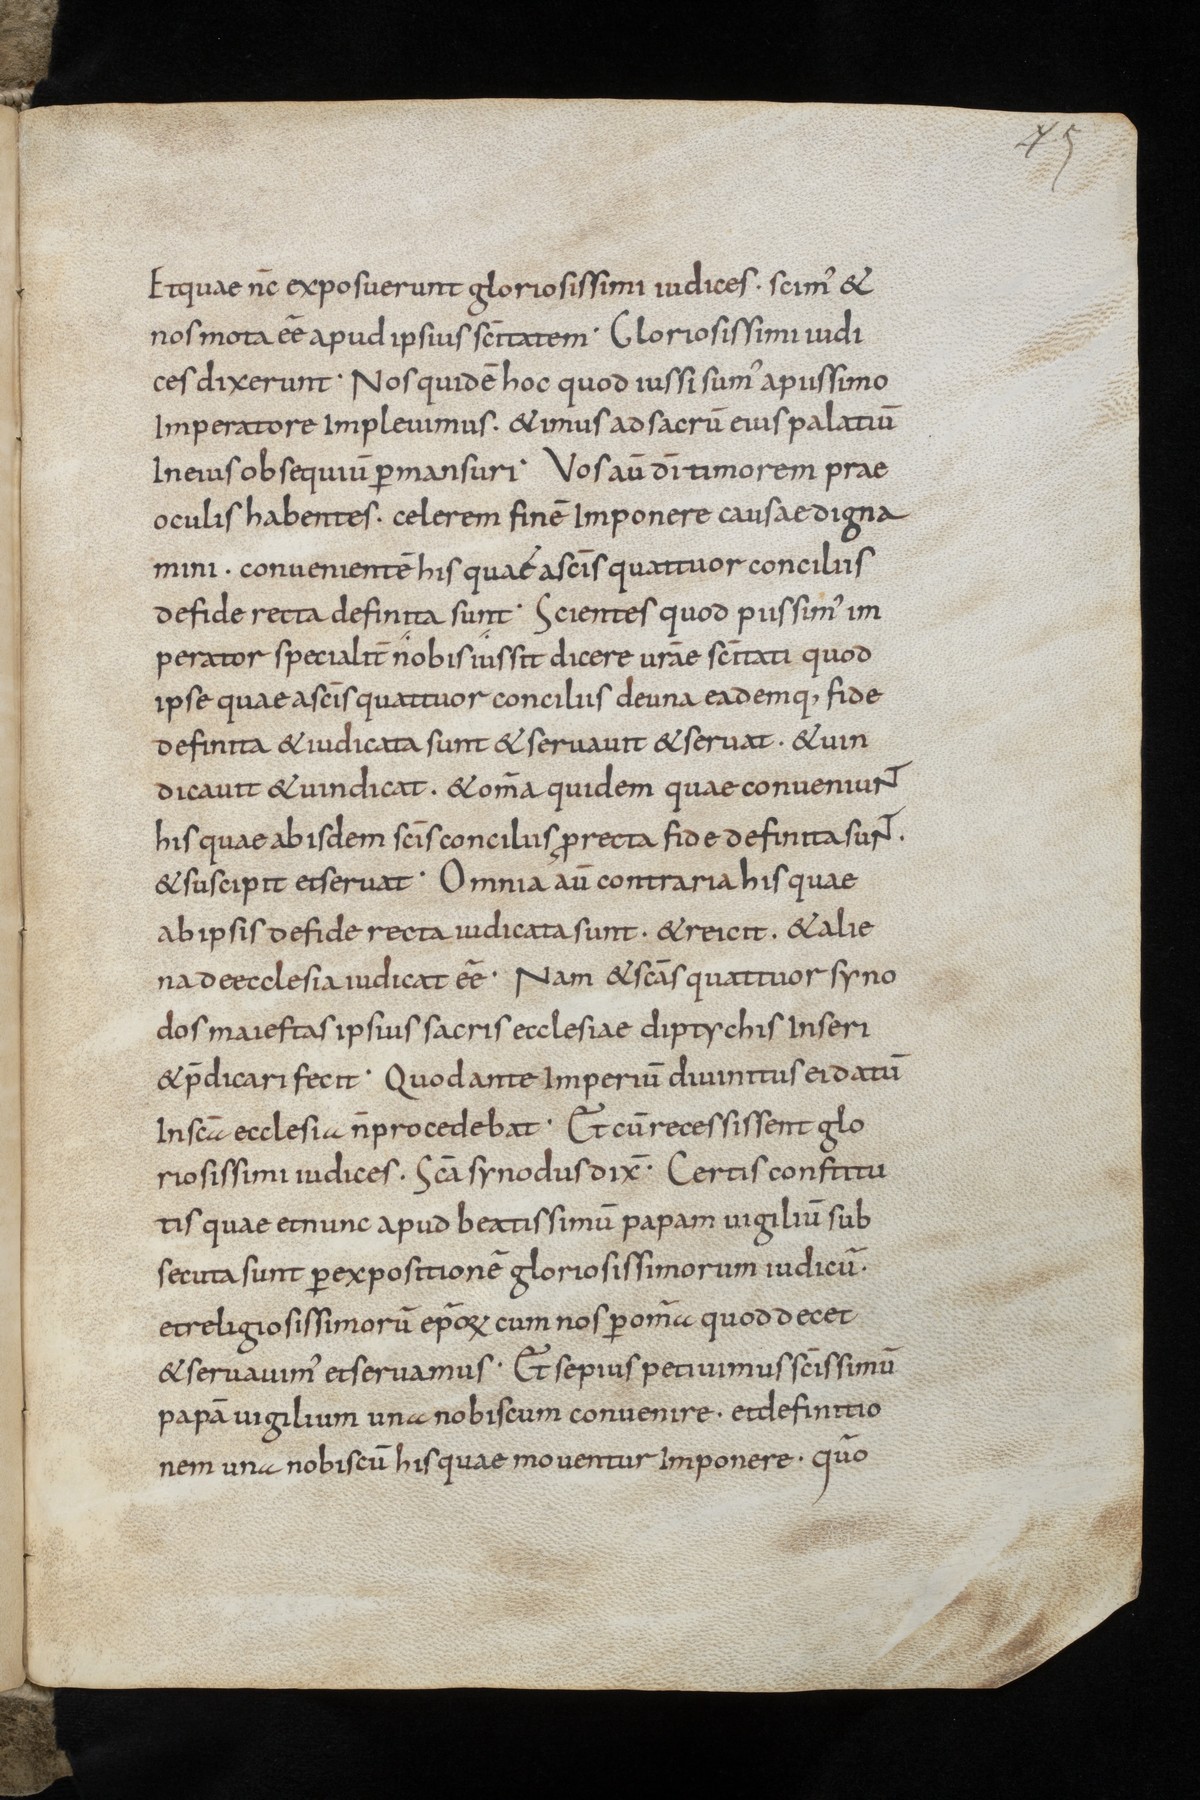 45
Etquae nc̄ exposuerunt gloriosissimi iudices · scim᾽ &
nos mota eē apud ipsius sc̄itatem · Gloriosissimi iudi
ces dixerunt · Nos quidē hoc quod iussi sum᾽ a piissimo
Imperatore Impleuimus · & imus ad sacrū eius palatiū
In eius obsequiū ꝑmansuri · Vos aū dī timorem prae
oculis habentes · celerem finē Imponere causae digna
mini · conuenientē his quae a sc̄is quattuor conciliis
de fide recta definita sunt · Scientes quod piissim᾽ im
perator specialit̄ nobis iussit dicere urāe sc̄itati quod
ipse quae a sc̄is quattuor conciliis de una eademq, fide
definita & iudicata sunt & seruauit & seruat · & uin
dicauit & uindicat · & om̄a quidem quae conueniuNT
his quae ab isdem sc̄is conciliis ꝓ recta fide definita suNT ·
& suscipit et seruat · Omnia aū contraria his quae
ab ipsis de fide recta iudicata sunt · & reicit · & alie
na de ecclesia iudicat eē · Nam & sc̄as quattuor syno
dos maiestas ipsius sacris ecclesiae diptychis Inseri
& p̄dicari fecit · Quod ante Imperiū diuinitus ei datū
In sc̄a ecclesia n̄ procedebat · Et cū recessissent glo
riosissimi iudices · Sc̄a synodus dix̄ · Certis constitu
tis quae et nunc apud beatissimū papam uigiliū sub
secuta sunt ꝑ expositionē gloriosissimorum iudicū ·
et religiosissimorū ep̄oꝝ cum nos ꝑ om̄a quod decet
& seruauim᾽ et seruamus · Et sepius petiuimus sc̄issimū
papā uigilium una nobiscum conuenire · et definitio
nem una nobiscū his quae mouentur Imponere · quō